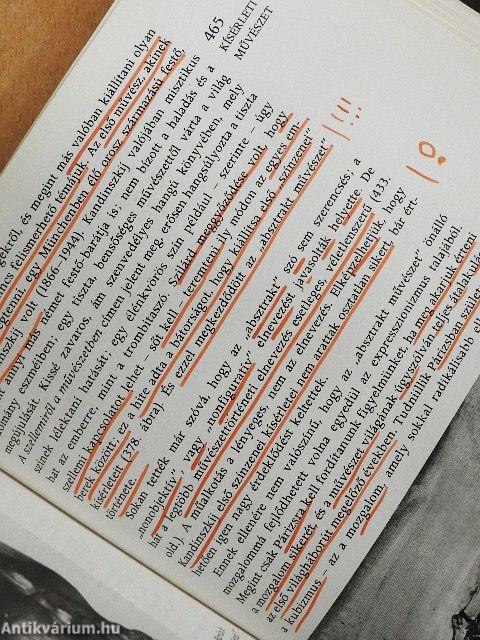 465
KÍSÉRLETI
MŰVÉSZET
gekről, és megint más valóban kiállítani olyan
nes felismerhető témájuk. Az első művész, akinek
egtenni, egy Münchenben élő orosz származású festő,
nszkij volt (1866–1944). Kandinszkij valójában misztikus
annyi más német festő-barátja is; nem bízott a haladás és a
omány eszméiben; egy tiszta, bensőséges művészettől várta a világ
megújulását. Kissé zavaros, ám szenvedélyes hangú könyvében, mely
A szellemiről a művészetben címen jelent meg, erősen hangsúlyozta a tiszta
színek lélektani hatását; egy élénkvörös szín például – szerinte – úgy
hat az emberre, mint a trombitaszó. Szilárd meggyőződése volt, hogy
szellemi kapcsolatot lehet – sőt kell – teremteni ily módon az egyes em-
berek között; ez a hite adta a bátorságot, hogy kiállítsa első „színzenei”
kísérleteit (378. ábra). És ezzel megkezdődött az „absztrakt művészet”
története.
Sokan tették már szóvá, hogy az „absztrakt” szó nem szerencsés; a
„nonobjektív,” vagy „nonfiguratív” elnevezést javasolták helyette. De
hát a legtöbb művészettörténeti elnevezés esetleges, véletlenszerű (433.
old.). A műalkotás a lényeges, nem az elnevezés. Elképzelhetjük, hogy
Kandinszkij első színzenei kísérletei nem arattak osztatlan sikert, bár ért-
hetően igen nagy érdeklődést keltettek.
Ennek ellenére nem valószínű, hogy az „absztrakt művészet” önálló
mozgalommá fejlődhetett volna egyedül az expresszionizmus talajából.
Megint csak Párizsra kell fordítanunk figyelmünket, ha meg akarjuk érteni
a mozgalom sikerét, és a művészet világának úgyszólván teljes átalakulás
az első világháborút megelőző években. Tudniillik Párizsban szüle
a kubizmus – az a mozgalom, amely sokkal radikálisabb el
!!!
Antikvárium.hu